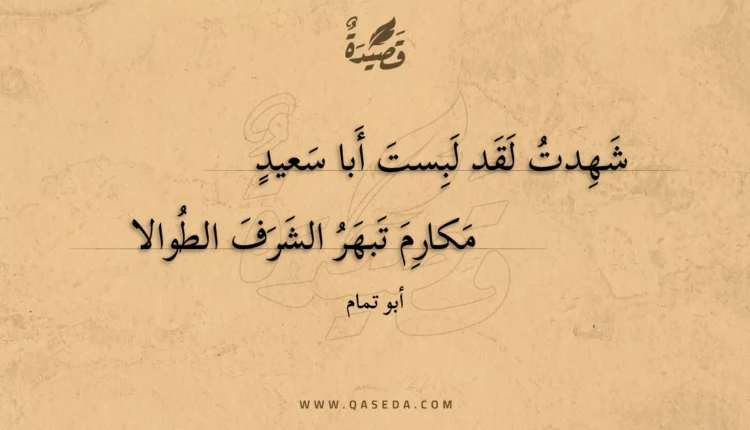 قَصِيْدَةٌ
شَهِدتُ لَقَد لَبِستَ أَبا سَعيدٍ
مَكارِمَ تَبهَرُ الشَرَفَ الطُوالا
أبو تمام
WWW.QASEDA.COM